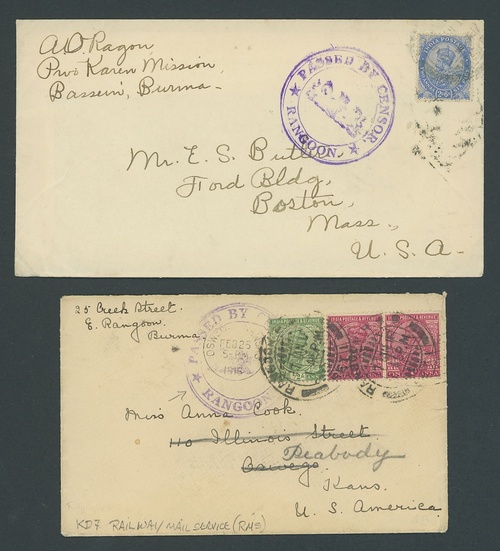 A.O. Ragon
Pwo Karen Mission
Bassein, Burma-
★ PASSED BY CENSOR. ★
RANGOON.
INDIA POSTAGE
Mr. E. S. Butler,
Ford Bldg,
Boston,
Mass.,
U. S. A-
25 Creek Street.
E. Rangoon.
Burma
PASSED BY
★ RANGOON
OSWEGO
FEB 26
INDIA POSTAGE & REVENUE
INDIA POSTAGE & REVENUE
Miss Anna Cook.
110 Illinois Street
Oswego
Peabody
Kans.
U. S. America
KD7 RAILWAY MAIL SERVICE (RMS)